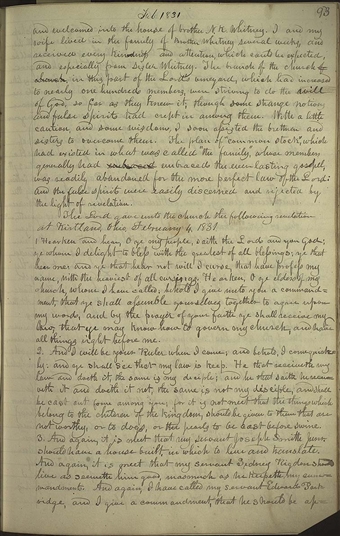 Feb 1831
93
and welcomed into the house of brother N. K. Whitney. I and my
wife lived in the family of brother Whitney several weeks, and
received every kindness and attention, which could be expected,
and especially from Sister Whitney. The branch of the church
in this part of the Lord's vineyard, which had increased
to nearly one hundred members, were striving to do the will
of God, so far as they knew it; though some strange notions
and false spirits had crept in among them. With a little
caution, and some wisdom, I soon assisted the brethren and
sisters to overcome them. The plan of "common stock," which
had existed in what was called "the family," whose members
generally had embraced the everlasting gospel,
was readily abandoned for the more perfect law of the Lord:
and the false spirits were easily discerned and rejected by
the light of revelation.
The Lord gave unto the church the following revelation
at Kirtland, Ohio February 4, 1831
1 Hearken and hear, O ye my people, saith the Lord and your God;
ye whom I delight to bless with the greatest of all blessings; ye that
hear me: and ye that hear me not will I curse, that have professed my
name, with the heaviest of all cursings. Hearken, O ye elders of my
church, whom I have called; behold I give unto you a command-
ment, that ye shall assemble yourselves together to agree upon
my word, and by the prayer of your faith ye shall receive my
law, that ye may know how to govern my church, and have
all things right before me.
2. And I will be your Ruler when I come; and behold, I come quick-
ly: and ye shall see that my law is kept. He that receiveth my
law and doeth it, the same is my disciple; and he that saith he receiveth
it and doeth it not, the same is not my disciple, and shall
be cast out from among you; for it is not meet that the things which
belong to the children of the kingdom, should be given to them that are
not worthy, or to dogs, or the pearls to be cast before swine.
3. And again, it is meet that my servant Joseph Smith jun.
should have a house built, in which to live and translate.
And again, it is meet that my servant Sidney Rigdon should
live as seemeth him good, inasmuch as he keepeth my com-
mandments. And again, I have called my servant Edward Part-
ridge, and I give a commandment, that he should be ap-